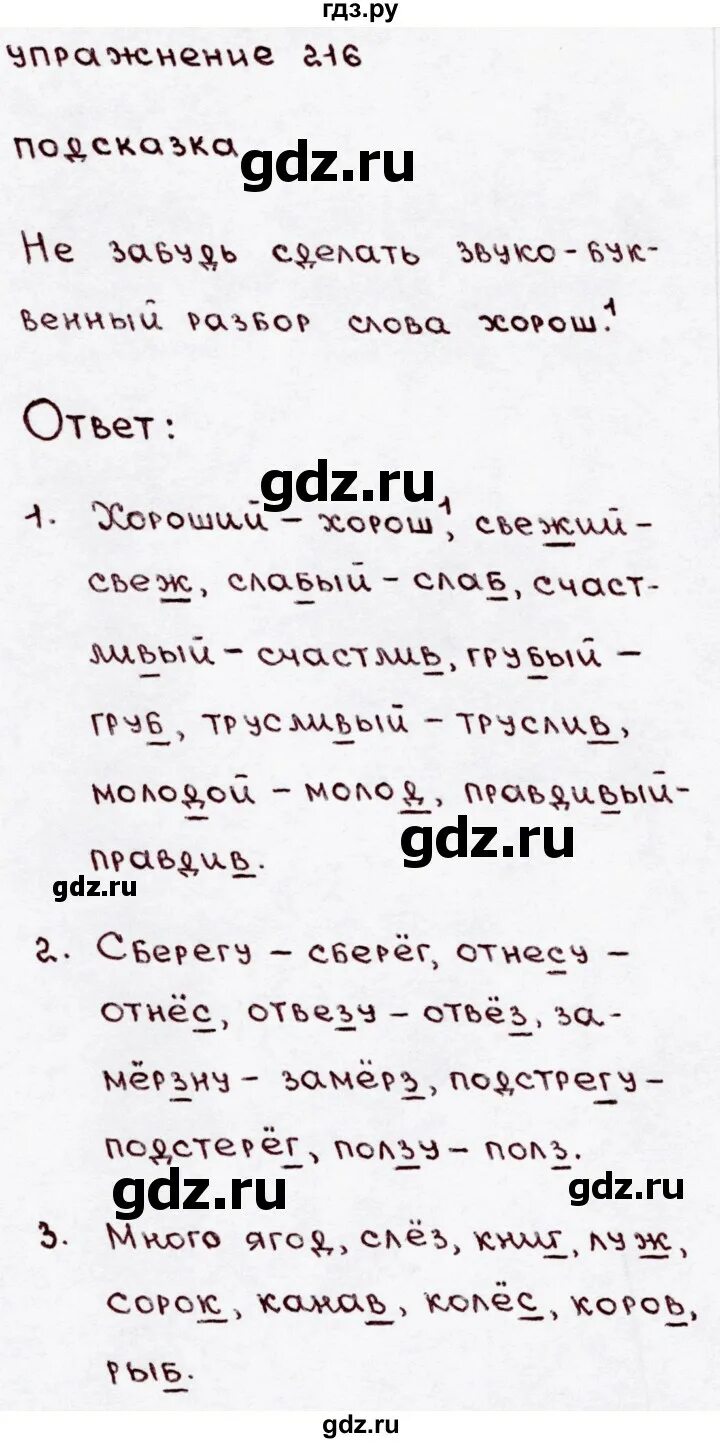 гдз.ру
упражнение 216
подсказка
gdz.ru
Не забудь сделать звуко-бук-
венный разбор слова хорош.¹
Ответ:
gdz.ru
1. Хороший – хорош¹, свежий –
свеж, слабый – слаб, счаст-
ливый – счастлив, грубый –
груб, трусливый – труслив,
молодой – молод, правдивый-
gdz.ru
правдив.
gdz.ru
2. Сберегу – сберёг, отнесу –
отнёс, отвезу – отвёз, за-
мёрзну – замёрз, подстрегу –
подстерёг, ползу – полз.
gdz.ru
gdz.ru
3. Много ягод, слёз, книг, луж,
сорок, канав, колёс, коров,
рыб.
gdz.ru